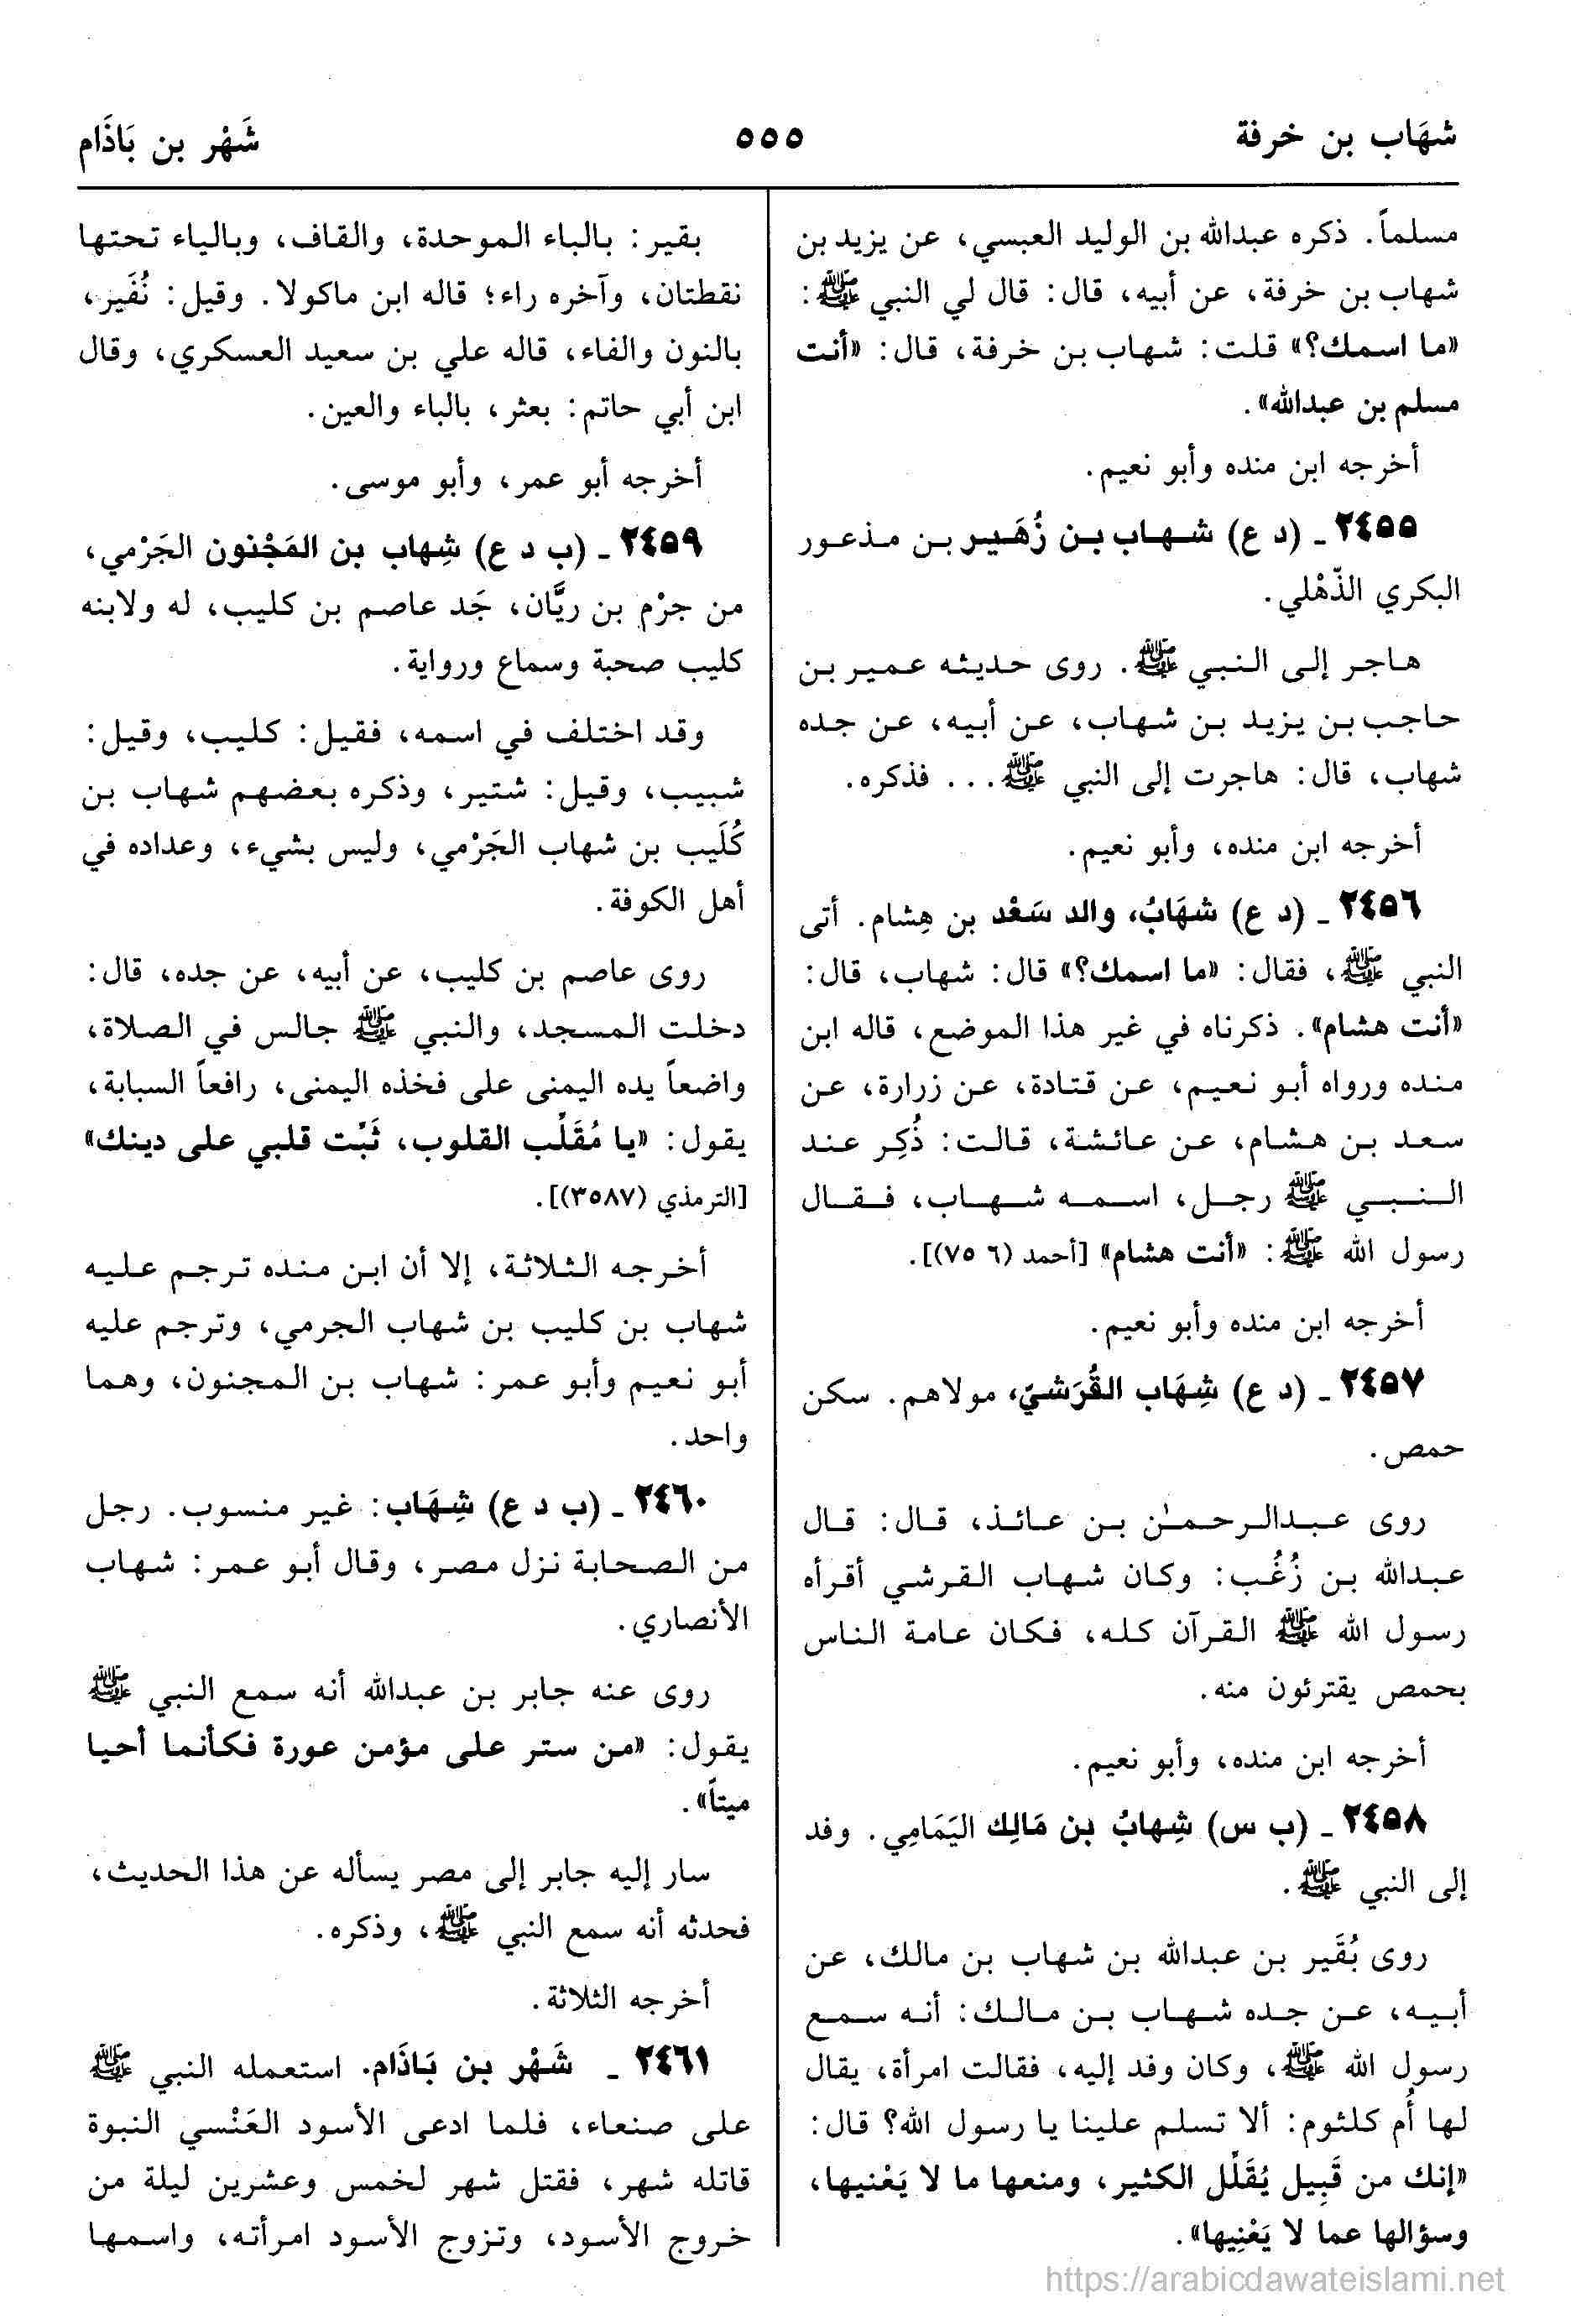 شهَاب بن خرفة
٥٥٥
شَهْر بن بَاذَام
مسلماً. ذكره عبدالله بن الوليد العبسي، عن يزيد بن
شهاب بن خرفة، عن أبيه، قال: قال لي النبي ﷺ:
«ما اسمك؟» قلت: شهاب بن خرفة، قال: «أنت
مسلم بن عبدالله».
أخرجه ابن منده وأبو نعيم.
٢٤٥٥ ـ (د ع) شهاب بن زُهَير بن مذعور
البكري الذّهْلي.
هاجر إلى النبي ﷺ. روى حديثه عمير بن
حاجب بن يزيد بن شهاب، عن أبيه، عن جده
شهاب، قال: هاجرت إلى النبي ﷺ... فذكره.
أخرجه ابن منده، وأبو نعيم.
٢٤٥٦ ـ (د ع) شهَابُ، والد سَعْد بن هِشام. أتى
النبي ﷺ، فقال: «ما اسمك؟» قال: شهاب، قال:
«أنت هشام». ذكرناه في غير هذا الموضع، قاله ابن
منده ورواه أبو نعيم، عن قتادة، عن زرارة، عن
سعد بن هشام، عن عائشة، قالت: ذُكِر عند
النبي ﷺ رجل، اسمه شهاب، فقال
رسول الله ﷺ: «أنت هشام» [أحمد (٦ ٧٥)].
أخرجه ابن منده وأبو نعيم.
٢٤٥٧ ـ (د ع) شِهَاب القُرَشيّ، مولاهم. سكن
حمص.
روى عبدالرحمٰن بن عائذ، قال: قال
عبدالله بن زُغُب: وكان شهاب القرشي أقرأه
رسول الله ﷺ القرآن كله، فكان عامة الناس
بحمص يقترئون منه.
أخرجه ابن منده، وأبو نعيم.
٢٤٥٨ ـ (ب س) شِهابُ بن مَالِك اليَمَامِي. وفد
إلى النبي ﷺ.
روى بُقَير بن عبدالله بن شهاب بن مالك، عن
أبيه، عن جده شهاب بن مالك: أنه سمع
رسول الله ﷺ، وكان وفد إليه، فقالت امرأة، يقال
لها أُم كلثوم: ألا تسلم علينا يا رسول الله؟ قال:
«إنك من قَبِيل يُقَلِّل الكثير، ومنعها ما لا يَعْنيها،
وسؤالها عما لا يَعْنِيها».
بقير: بالباء الموحدة، والقاف، وبالياء تحتها
نقطتان، وآخره راء؛ قاله ابن ماكولا. وقيل: نُفَير،
بالنون والفاء، قاله علي بن سعيد العسكري، وقال
ابن أبي حاتم: بعثر، بالباء والعين.
أخرجه أبو عمر، وأبو موسى.
٢٤٥٩ ـ (ب د ع) شِهاب بن المَجْنون الجَرْمي،
من جرْم بن ريَّان، جَد عاصم بن كليب، له ولابنه
كليب صحبة وسماع ورواية.
وقد اختلف في اسمه، فقيل: كليب، وقيل:
شبيب، وقيل: شتير، وذكره بعضهم شهاب بن
كُلَيب بن شهاب الجَرْمي، وليس بشيء، وعداده في
أهل الكوفة.
روى عاصم بن كليب، عن أبيه، عن جده، قال:
دخلت المسجد، والنبي ﷺ جالس في الصلاة،
واضعاً يده اليمنى على فخذه اليمنى، رافعاً السبابة،
يقول: «يا مُقَلِّب القلوب، ثَبِّت قلبي على دينك»
[الترمذي (٣٥٨٧)].
أخرجه الثلاثة، إلا أن ابن منده ترجم عليه
شهاب بن كليب بن شهاب الجرمي، وترجم عليه
أبو نعيم وأبو عمر: شهاب بن المجنون، وهما
واحد.
٢٤٦٠ ـ (ب د ع) شِهَاب: غير منسوب. رجل
من الصحابة نزل مصر، وقال أبو عمر: شهاب
الأنصاري.
روى عنه جابر بن عبدالله أنه سمع النبي ﷺ
يقول: «من ستر على مؤمن عورة فكأنما أحيا
ميتاً».
سار إليه جابر إلى مصر يسأله عن هذا الحديث،
فحدثه أنه سمع النبي ﷺ، وذكره.
أخرجه الثلاثة.
٢٤٦١ ـ شَهْر بن بَاذَام. استعمله النبي ﷺ
على صنعاء، فلما ادعى الأسود العَنْسي النبوة
قاتله شهر، فقتل شهر لخمس وعشرين ليلة من
خروج الأسود، وتزوج الأسود امرأته، واسمها
https://arabicdawateislami.net